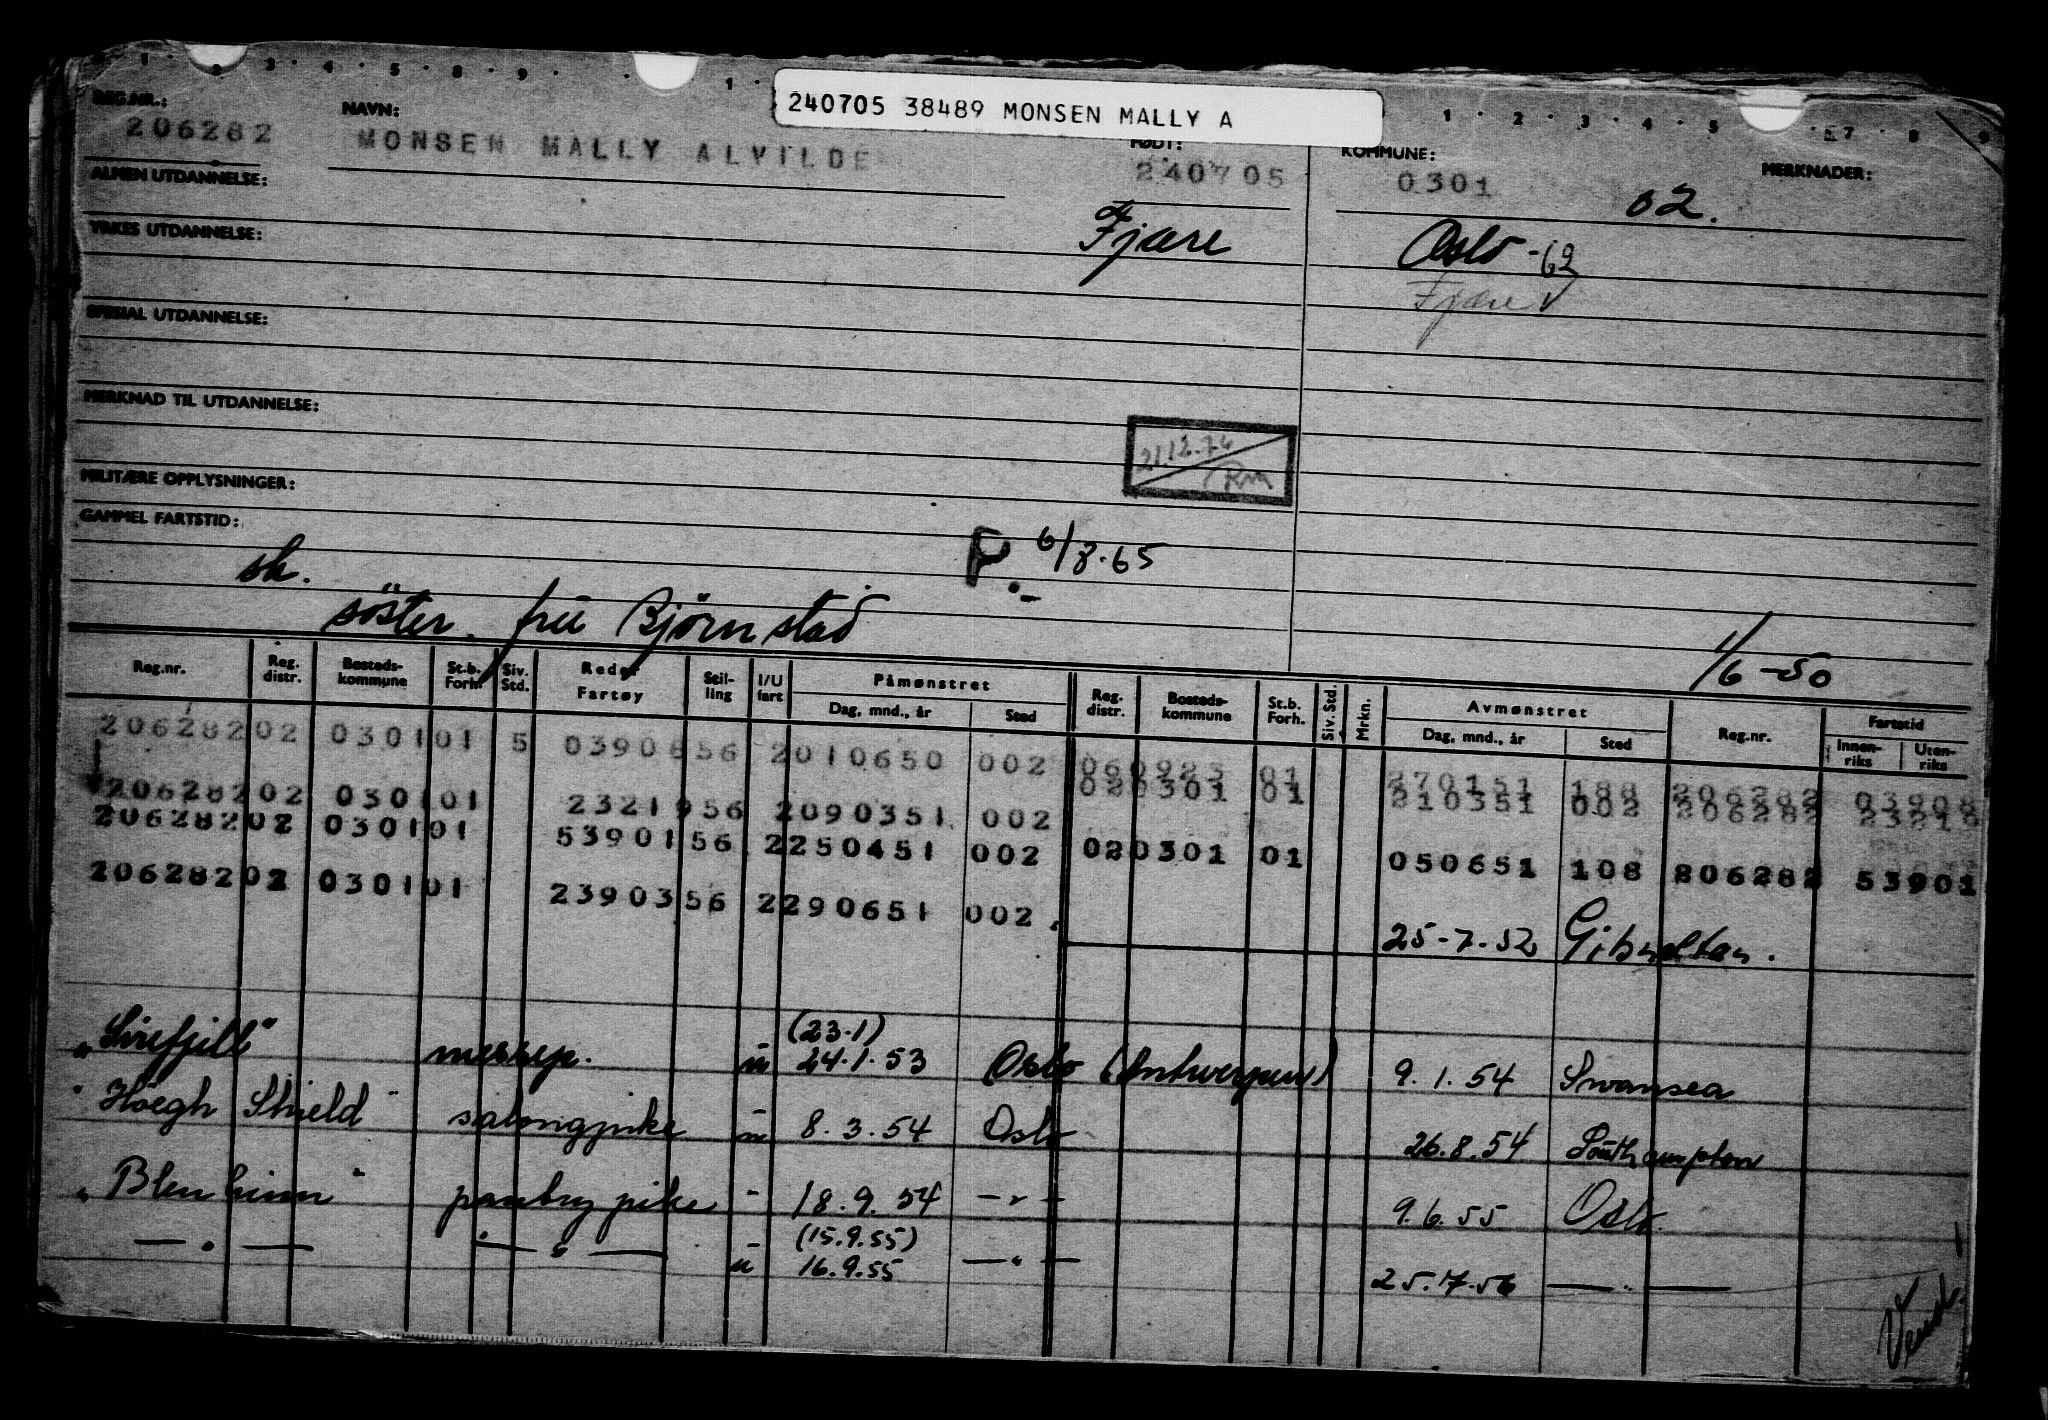 240705 38489 MONSEN MALLY A
REG.NR.: 206282 NAVN: MONSEN MALLY ALVILDE FØDT: 240705 KOMMUNE: 0301 MERKNADER:
02.
ALMEN UTDANNELSE:
YRKES UTDANNELSE: Fjære Oslo -62
Fjære V
SPESIAL UTDANNELSE:
MERKNAD TIL UTDANNELSE:
21.12.74
MILITÆRE OPPLYSNINGER:
GAMMEL FARTSTID:
sk. P. 6/8.65
söster. frü Bjørnstad 1/6-50
Reg.nr. Reg. distr. Bosteds-kommune St.b. Forh. Siv. Std. Rederi Fartøy Stil-ling I/U fart Påmønstret Dag, mnd., år Sted Reg. distr. Bosteds-kommune St.b. Forh. Siv. Std. Mrkn. Avmønstret Dag, mnd., år Sted Reg.nr. Fartstid Innen-riks Uten-riks
206282 02 0301 01 5 0390 56 2 010650 002 01 270151 188 206282
206282 02 0301 01 2321 956 2 090351 002 02 0301 01 210351 002 206282
206282 02 0301 01 5390 156 2 250451 002 02 0301 01 050651 108 206282 53901
206282 02 0301 01 2390 356 2 290651 002 25-7-52 Gibraltar.
(23.1)
"Sirefjell" messep. ü 24.1.53 Oslo (Antwerpen) 9.1.54 Swansea
"Höegh Shield" salongpike ü 8.3.54 Oslo 26.8.54 Southampton
"Blenheim" pantry pike - 18.9.54 -"- 9.6.55 Oslo.
(15.9.55)
—"— —"— ü 16.9.55 —"— 25.7.56 —"—
Vend.